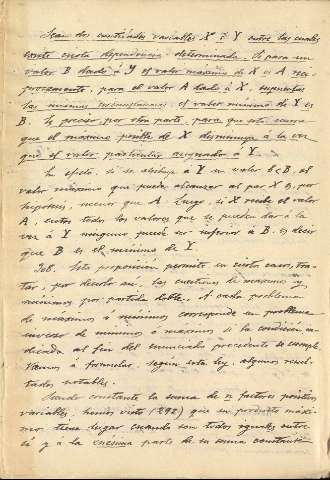 Sean dos cantidades variables X é Y entre las cuales
existe cierta dependencia determinada. Si para un
valor B dado á Y el valor máximo de X es A, reci-
procamente, para el valor A dado á X, supuestas
las mismas circunstancias, el valor mínimo de Y es
B. Es preciso, por otra parte, para que esto ocurra
que el máximo posible de X disminuya á la vez
que el valor particular asignado á Y.
En efecto, si se atribuye á Y un valor b<B, el
valor máximo que pueda alcanzar al par X es, por
hipótesis, menor que A. Luego, si X recibe el valor
A, entre todos los valores que se pueden dar á la
vez á Y ninguno puede ser inferior á B, es decir
que B es el mínimo de Y.
308. Esta proposición permite en ciertos casos, tra-
tar, por decirlo así, las cuestiones de máximos y
mínimos por partida doble. A cada problema
de máximos ó mínimos corresponde un problema
inverso de mínimos ó máximos si la condición in-
dicada al fin del enunciado precedente se cumple.
Vamos á formular, según esta ley, algunos resul-
tados notables.
Siendo constante la suma de n factores positivos
variables, hemos visto (292) que su producto máxi-
mo tiene lugar cuando son todos iguales entre
sí y á la enésima parte de su suma constante